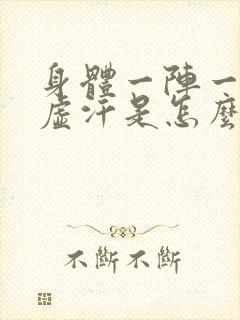 身體一陣一
虛汗是怎麼
不斷不斷